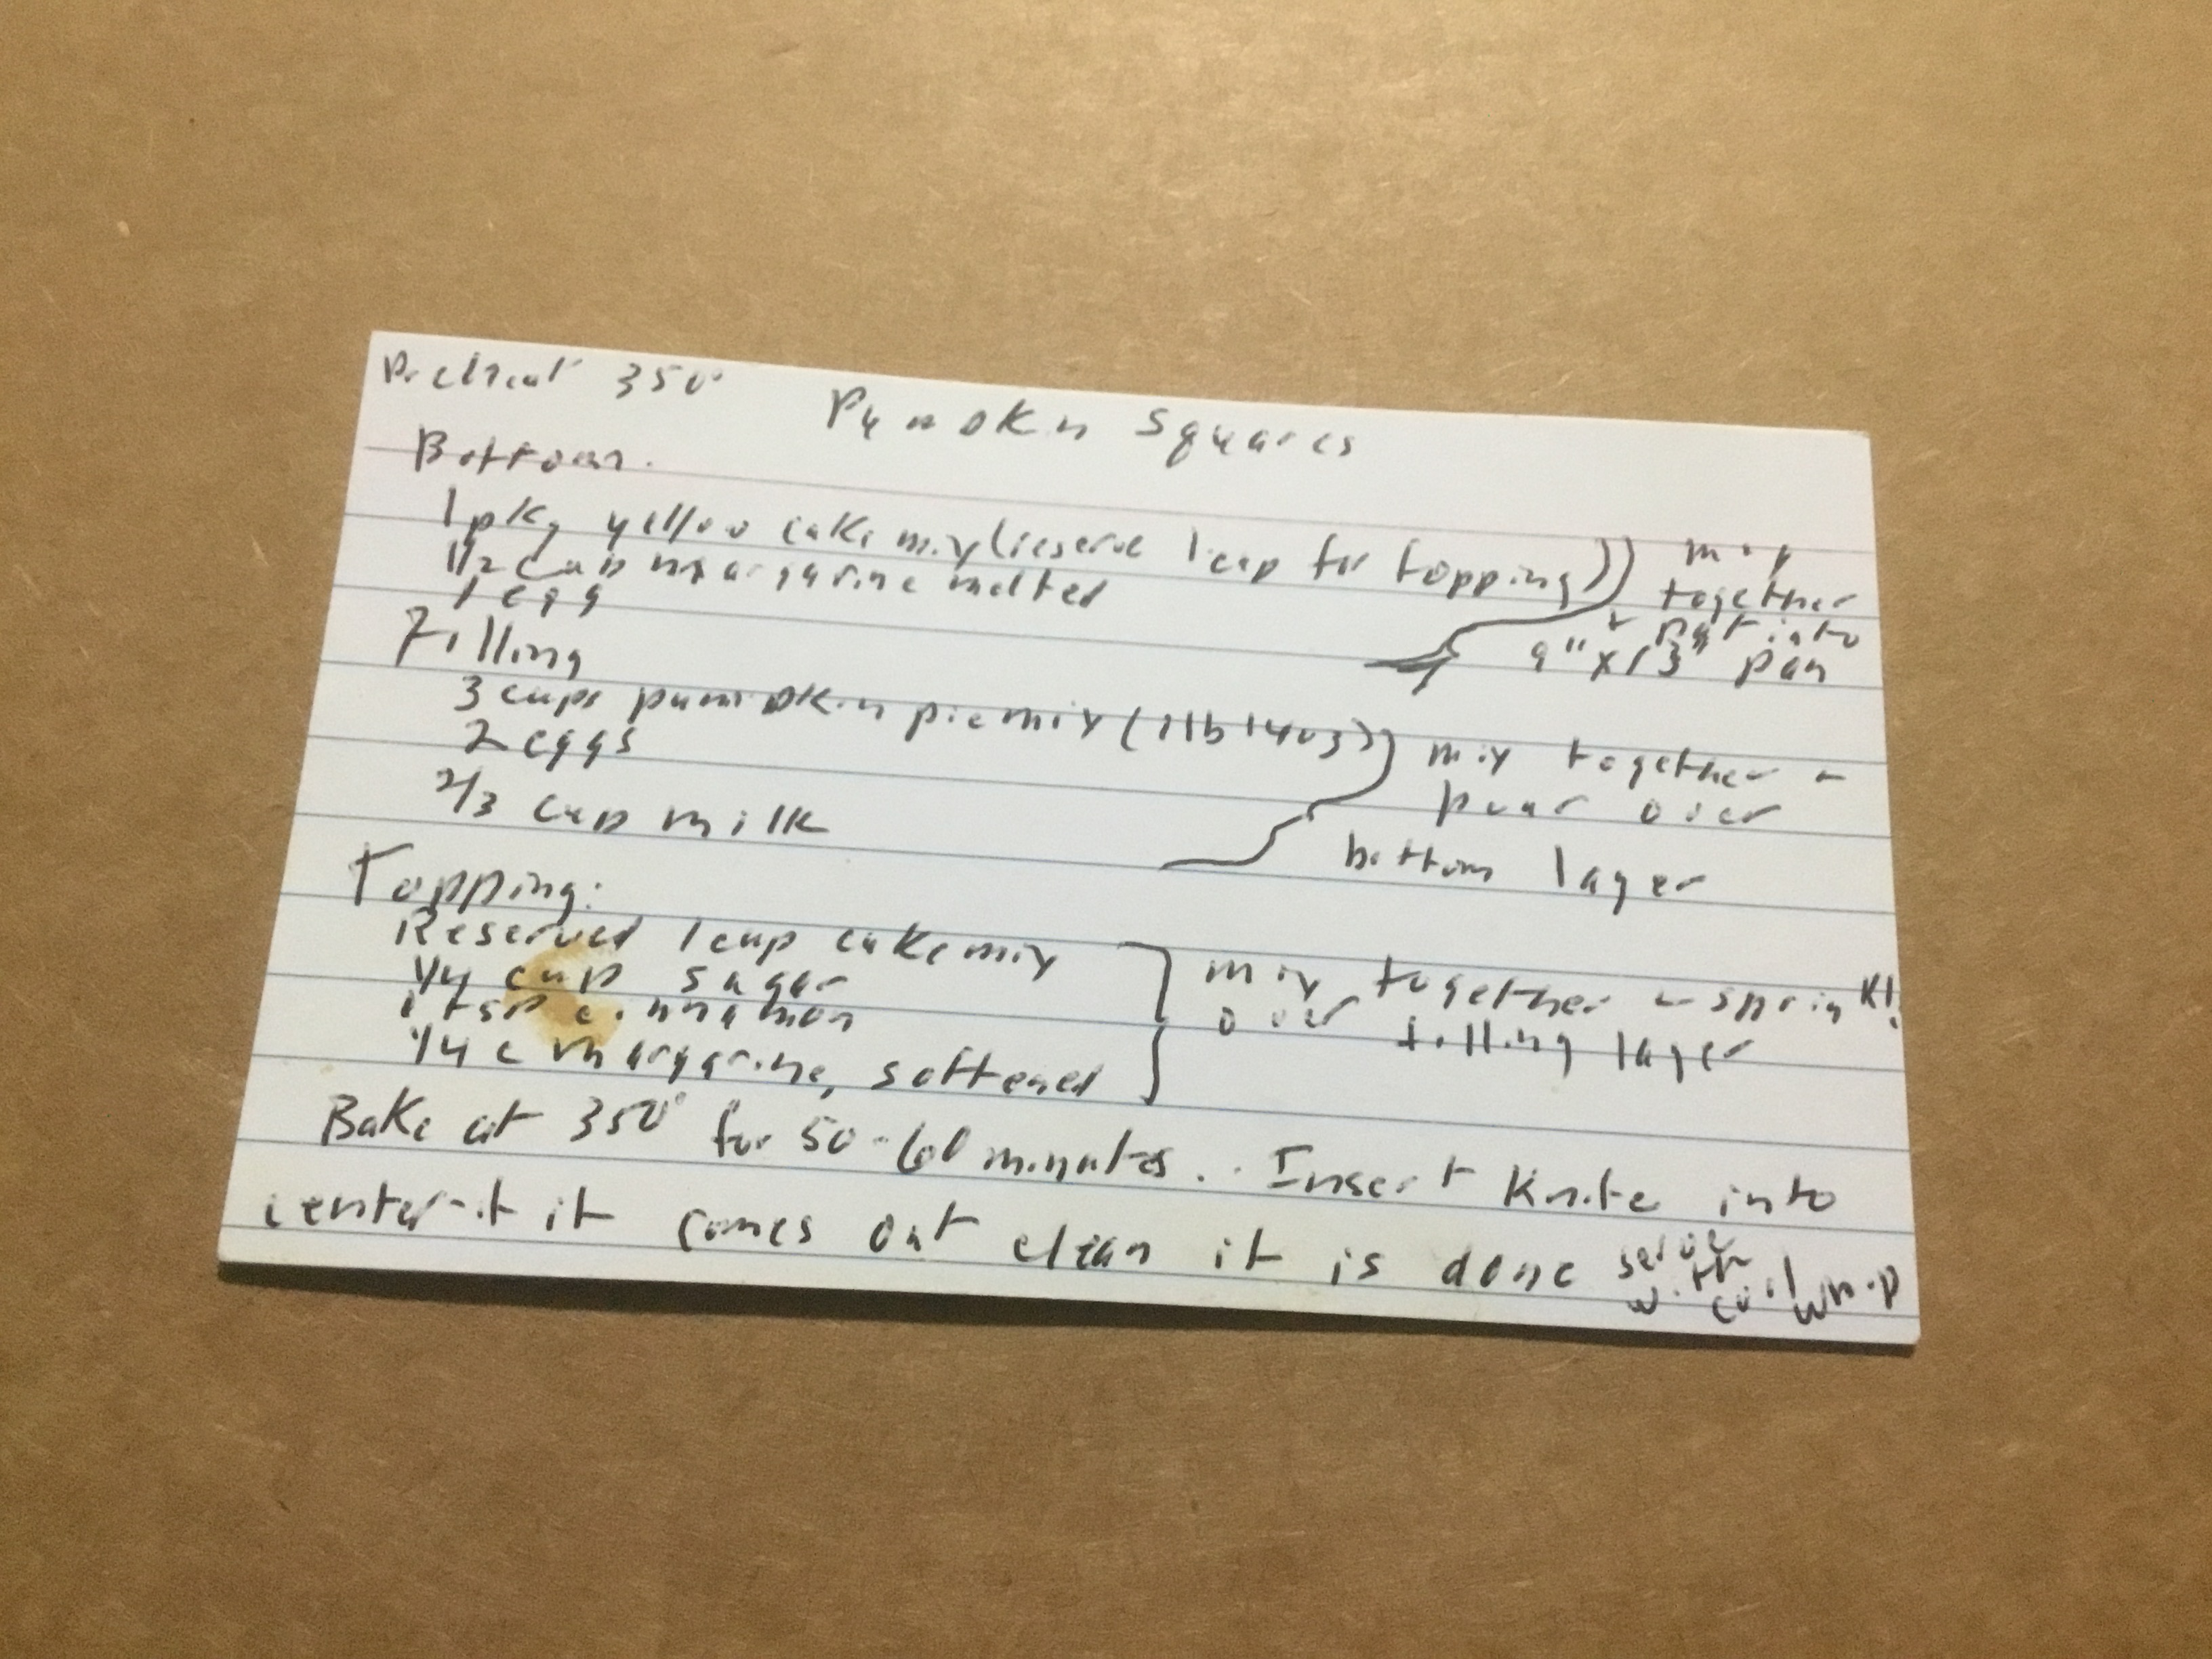 Preheat 350°
Pumpkin Squares
Bottom.
1 pkg yellow cake mix (reserve 1 cup for topping)
1/2 cup margarine melted
1 egg
mix
together
+ pat into
9" x 13" pan
Filling
3 cups pumpkin pie mix (1 lb 14 oz)
2 eggs
2/3 cup milk
mix together +
pour over
bottom layer
Topping:
Reserved 1 cup cake mix
1/4 cup sugar
1 tsp cinnamon
1/4 c margarine, softened
mix together + sprinkl
over filling layer
Bake at 350° for 50-60 minutes. Insert knife into
center-if it comes out clean it is done
serve
with cool whip